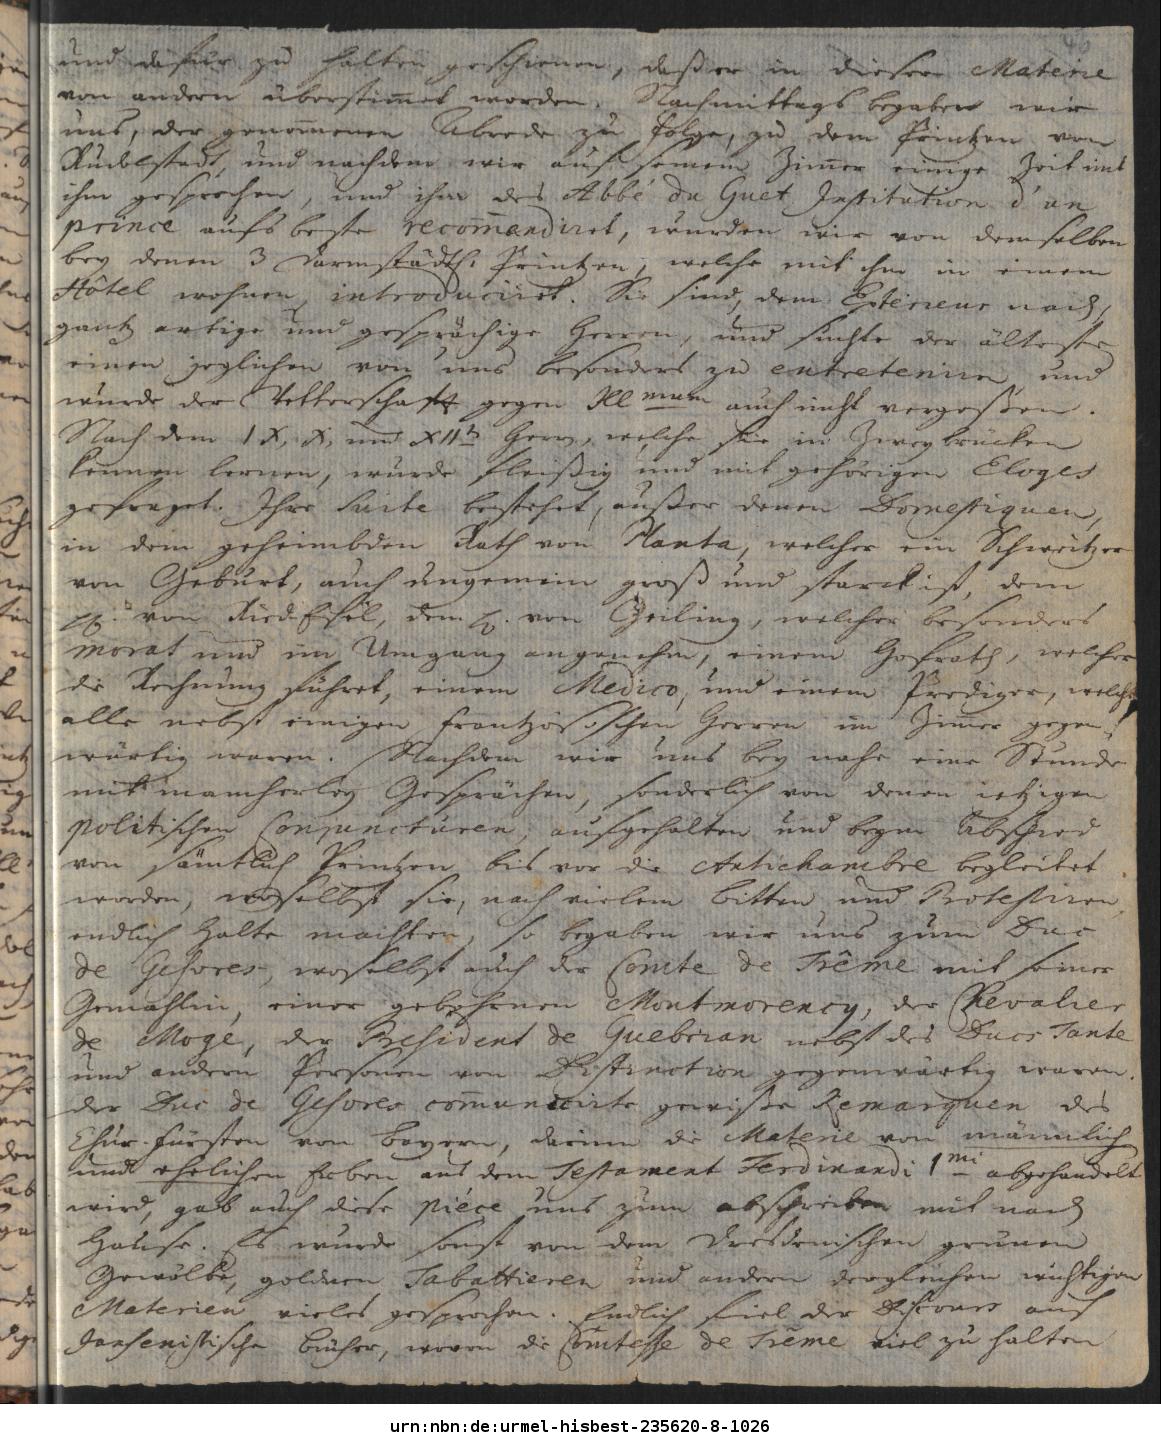 und dafür zu halten geschienen, daß er in dieser Materie
von andern überstimmet worden. Nachmittags begaben wir
uns, der genom̅enen Abrede zu folge, zu dem Printzen von
Rudelstadt, und nachdem wir auf seinem Zim̅er einige Zeit mit
ihm gesprochen, und ihm des Abbé du Guet Institution d'un
prince aufs beste recom̅andiret, wurden wir von demselben
bey denen 3 Darmstädts. Printzen, welche mit ihm in einem
Hôtel wohnen, introduciret. Sie sind, dem Exterieur nach,
gantz artige und gesprächige Herren, und suchte der älteste
einen jeglichen von uns besonders zu entreteniren, und
wurde der Vetterschafft gegen Illmum auch nicht vergeßen.
Nach dem IX, X, und XIIt Herrn, welche sie in Zweybrücken
kennen lernen, wurde fleißig und mit gehörigen Eloges
gefraget. Ihre Suite bestehet, außer denen Domestiquen,
in dem geheimbden Rath von Planta, welcher ein Schweitzer
von Geburt, auch ungemein groß und starck ist, dem
H. von Riedesel, dem H. von Geiling, welcher besonders
morat und im Umgang angenehm, einem Hofrath, welcher
die Rechnung führet, einem Medico, und einem Prediger, welche
alle nebst einigen frantzösischen Herren im Zim̅er gegen-
wärtig waren. Nachdem wir uns bey nahe eine Stunde
mit mancherley Gesprächen, sonderlich von denen ietzigen
politischen Conjuncturen, aufgehalten und beym Abschied
von sämtlich Printzen bis vor die Antichambre begleitet
worden, woselbst sie, nach vielem bitten und Protestiren,
endlich Halte machten, so begaben wir uns zum Duc
de Gesvres, woselbst auch der Comte de Trême mit seiner
Gemahlin, einer gebohrnen Montmorency, der Chevalier
de Moge, der President de Guebrian nebst des Ducs Tante
und andern Personen von Distinction gegenwärtig waren.
Der Duc de Gesvres com̅unicirte gewiße Remarquen des
Chur-Fürsten von Bayern, darinn die Materie von männlich
und ehelichen Erben aus dem Testament Ferdinandi 1mi abgehandelt
wird, gab auch diese piéce uns zum abschreiben mit nach
Hause. Es wurde sonst von dem Dresdenischen grünen
Gewölbe, goldnen Tabattieren und andern dergleichen wichtigen
Materien vieles gesprochen. Endlich fiel der Discours auf
Jansenistische bücher, wovon die Comtesse de Trême viel zu halten
urn:nbn:de:urmel-hisbest-235620-8-1026